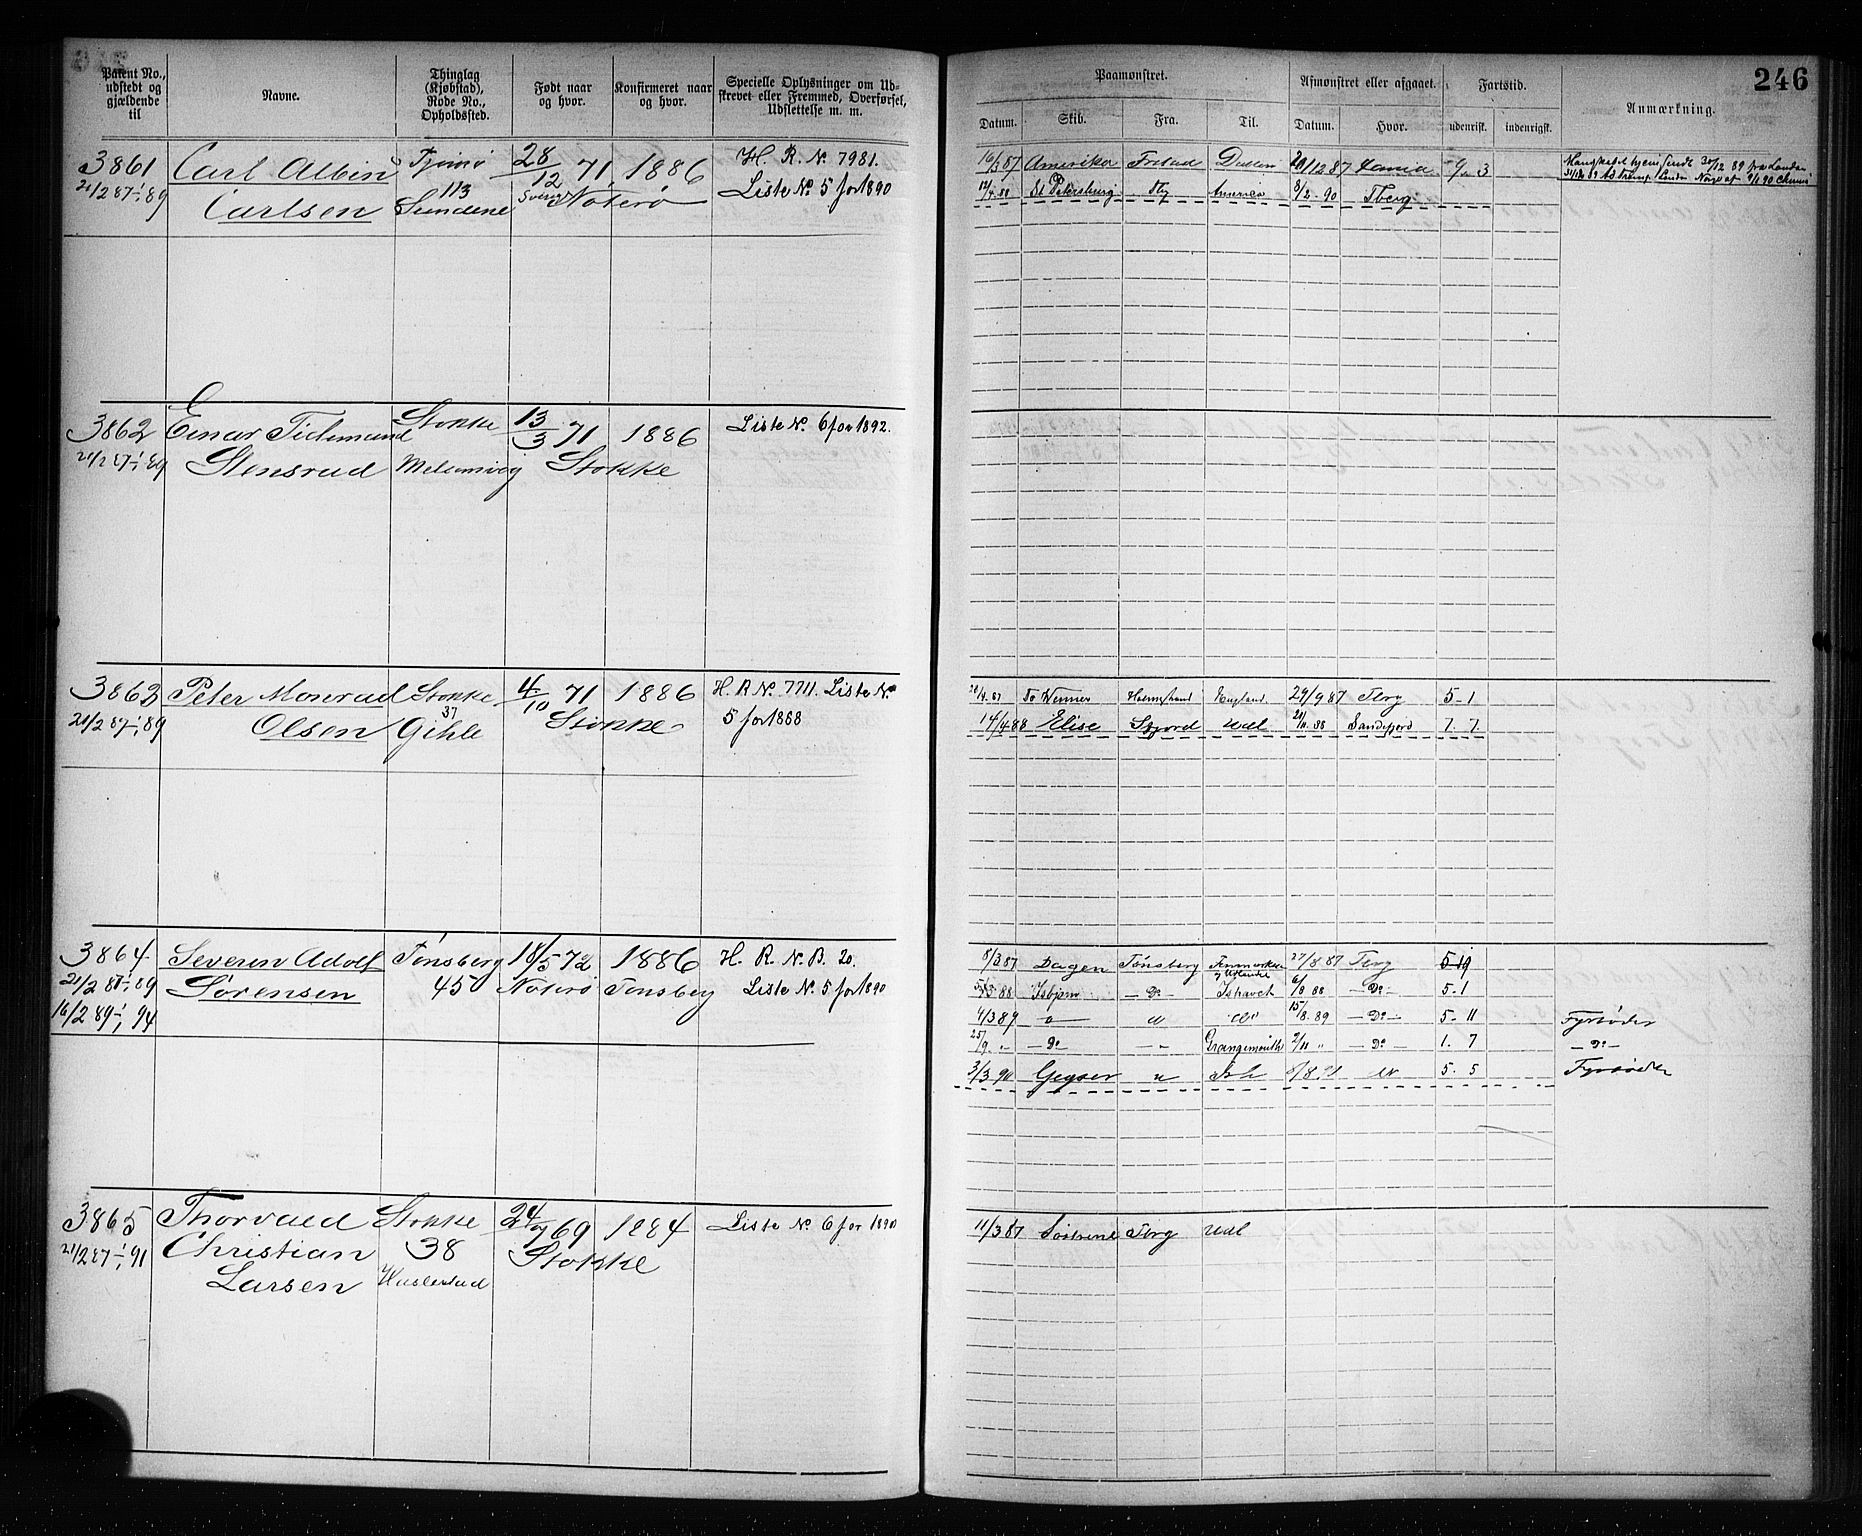 246
Patent No., udstedt og gjældende til
Navne.
Thinglag (Kjøbstad), Rode No., Opholdssted.
Født naar og hvor.
Konfirmeret naar og hvor.
Specielle Oplysninger om Udskrevet eller Fremmed, Overførsel, Udslettelse m. m.
Paamønstret.
Afmønstret eller afgaaet.
Fartstid.
Anmærkning.
Datum. Skib. Fra. Til. Datum. Hvor. udenrigsk. indenrigsk.
3861 Carl Albin Tjømø 28/12 71 1886 H. R. N. 7981.
21/2 87-1/1 89 Carlsen 113 Sundene Nøterø Liste No. 5 for 1890
16/3 87 Amerika Fr.stad 20/12 87 9 3
12/4 88 St Petersburg 8/2 90 Tberg
3862 Einar Tidemand Stokke 13/3 71 1886 Liste No. 6 for 1892.
21/2 87-1/1 89 Stensrud Melsomvig Stokke
3863 Peter Monrad Stokke 4/10 71 1886 H. R No. 7711. Liste No
21/2 87-1/1 89 Olsen 37 Gihle Stokke 5 for 1888
Holmestrand England 29/9 87 Tbrg 5-1
14/4 88 Elise Sfjord Udl 21/11 88 Sandefjord 7. 7.
3864 Severin Adolf Tønsberg 18/5 72 1886 H. R. N. B. 20.
21/2 87-1/1 89 Sørensen 45 Nøterø Tønsberg Liste No. 5 for 1890
16/2 89-1/1 94
8/3 87 Dagen Tønsberg 27/8 87 Tbrg 5 19
Isbjørn - Do - Ishavet 6/8 88 - Do - 5-1
4/3 89 15/8 89 - Do - 5-11 Fyrbøder
25/9 - Do - Grangemouth 2/11 " - Do - 1. 7 - Do -
3/3 90 Geyser " 5. 5 Fyrbøder
3865 Thorvald Stokke 24/7 69 1884 Liste No. 6 for 1890
21/2 87-1/1 91 Christian 38 Stokke
Larsen Haslestad
11/3 87 Søstrene Tbrg Udl